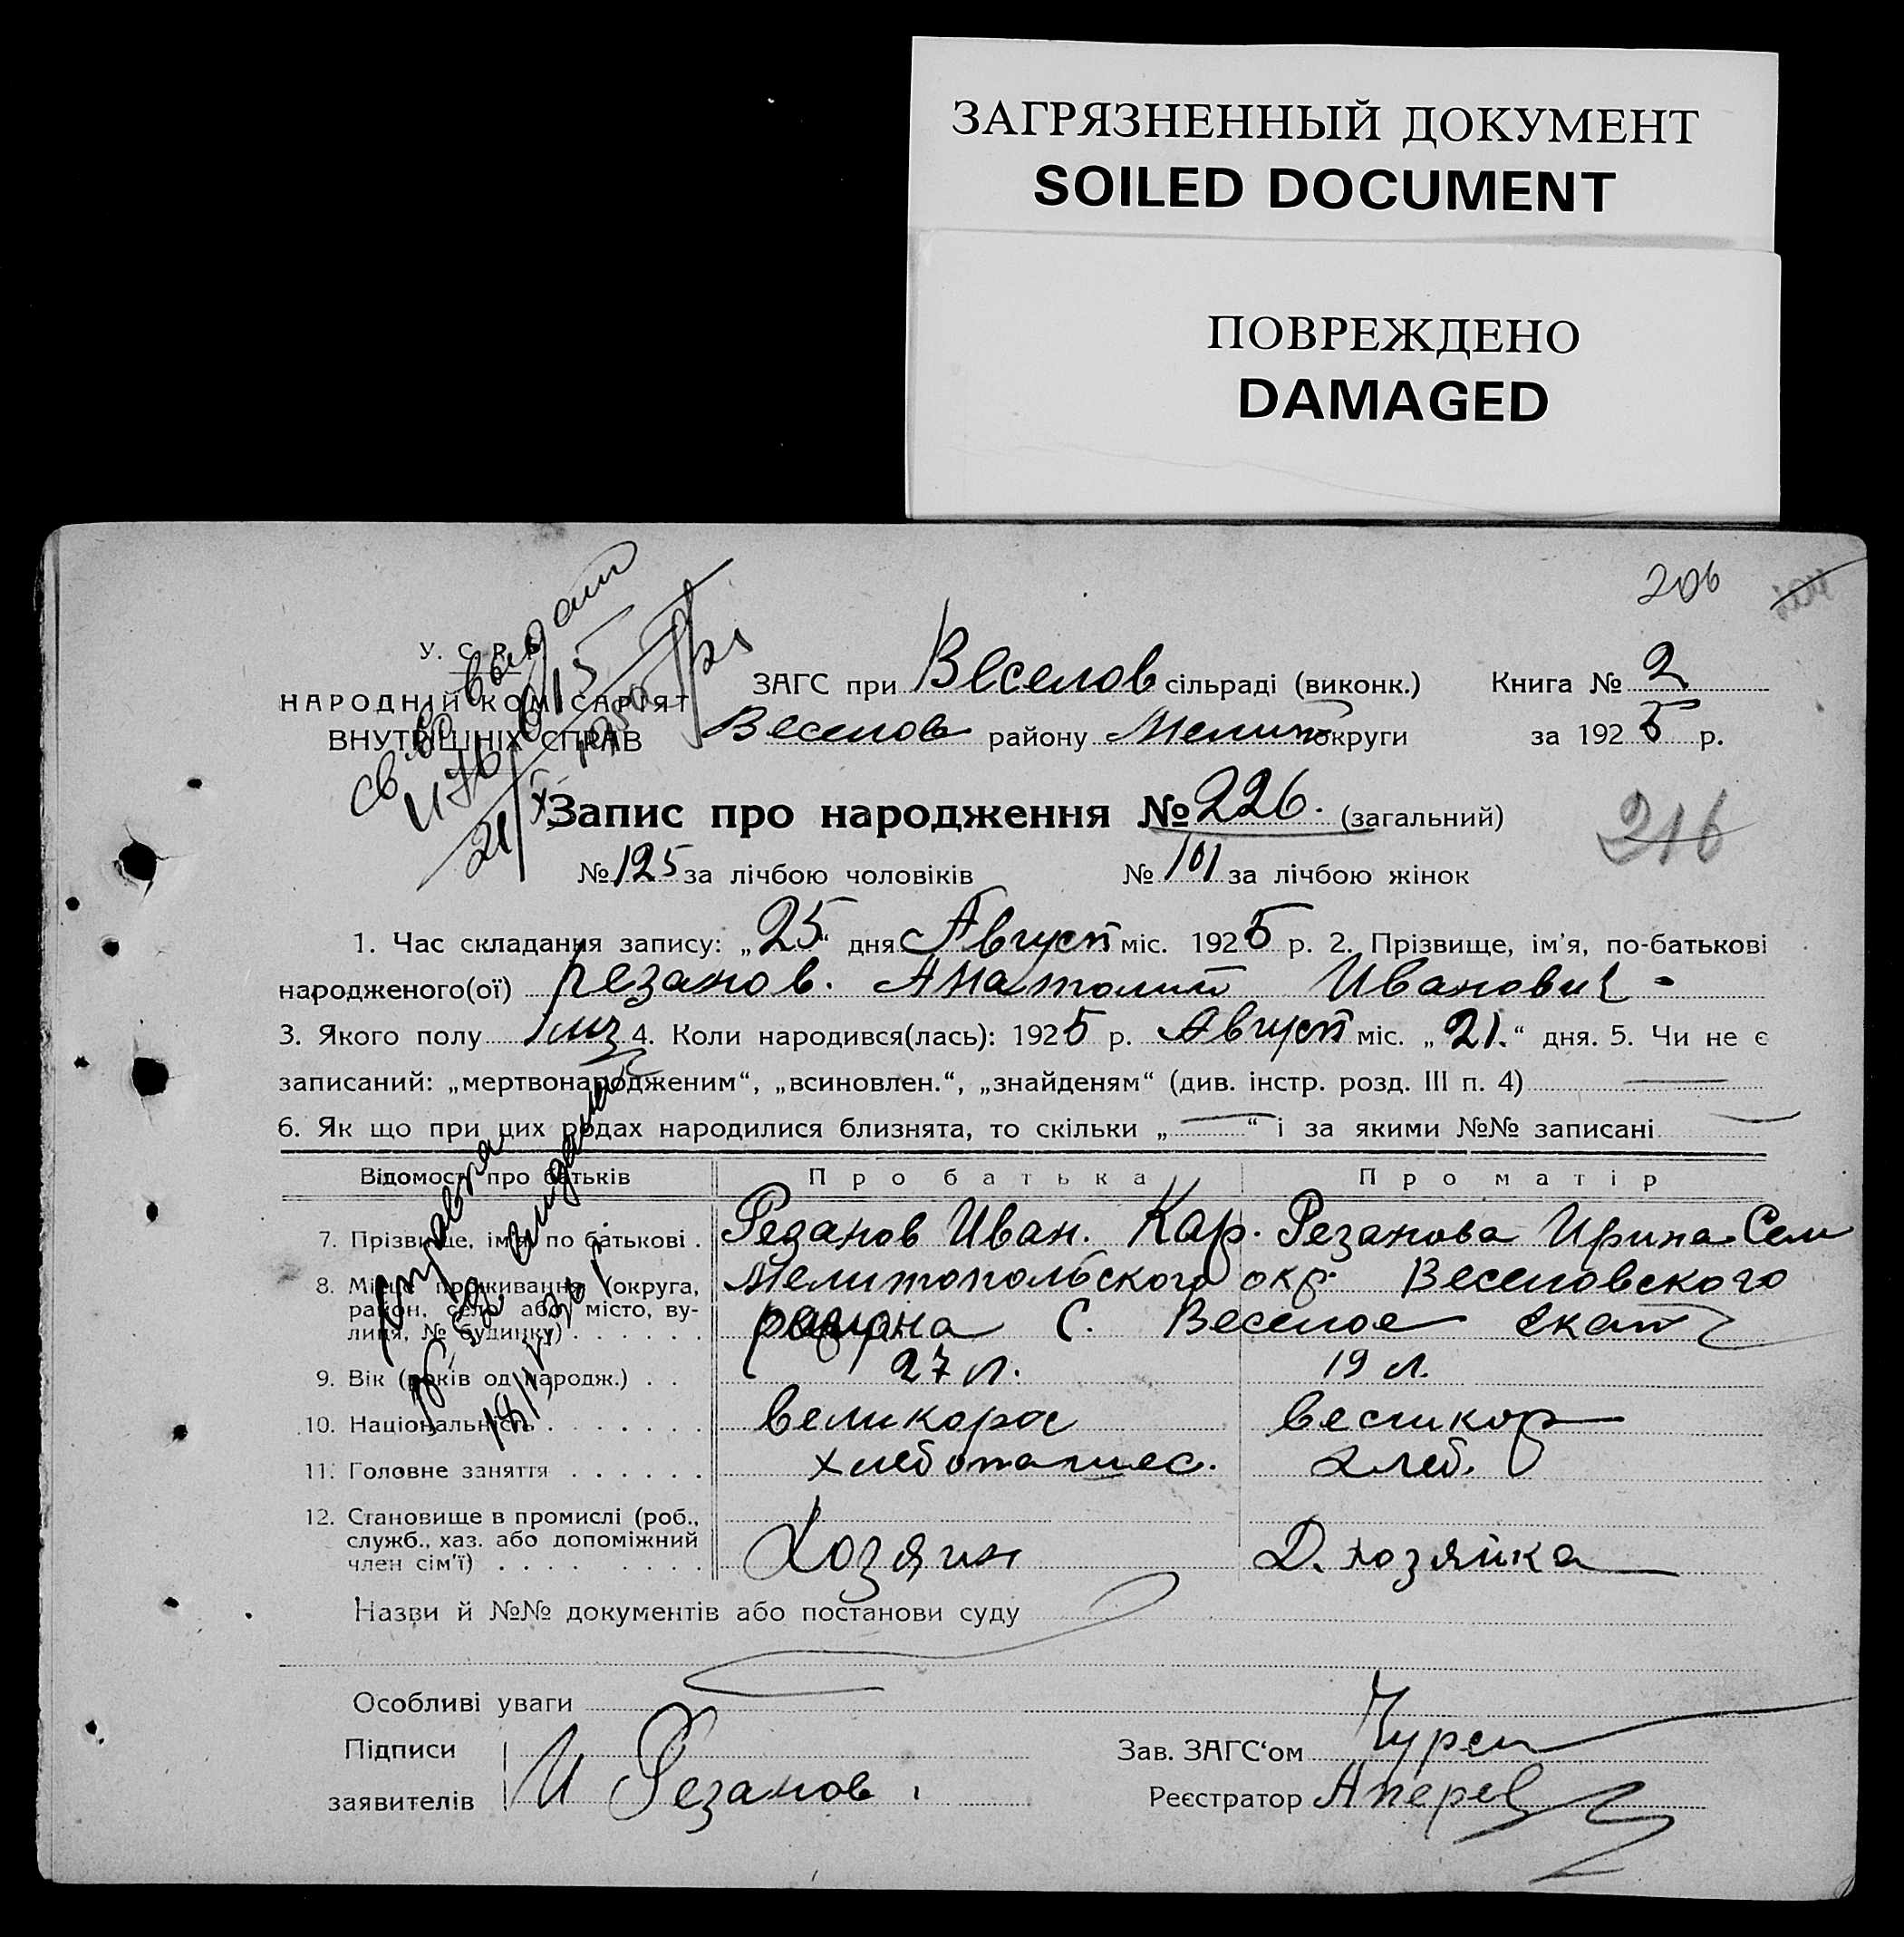 ЗАГРЯЗНЕННЫЙ ДОКУМЕНТ
SOILED DOCUMENT
ПОВРЕЖДЕНО
DAMAGED
206
У. С. Р. Р.
НАРОДНІЙ КОМІСАРІЯТ
ВНУТРІШНІХ СПРАВ
ЗАГС при Веселов сільраді (виконк.) Книга № 2
Веселов району Мелит округи за 1925 р.
Запис про народження № 226. (загальний)
216
№ 125 за лічбою чоловіків № 101 за лічбою жінок
1. Час складання запису: „25“ дня Август міс. 1925 р. 2. Прізвище, ім’я, по-батькові
народженого(ої) Резанов. Анатолий Иванович
3. Якого полу муз 4. Коли народився(лась): 1925 р. Август міс. „21.“ дня. 5. Чи не є
записаний: „мертвонародженим“, „всиновлен.“, „знайденям“ (див. інстр. розд. III п. 4) —
6. Як що при цих родах народилися близнята, то скільки „—“ і за якими №№ записані —
Відомості про батьків Про батька Про матір
7. Прізвище, ім’я, по батькові . Резанов Иван. Кар. Резанова Ирина Сем
8. Місце проживання (округа, Мелитопольского окр. Веселовского
район, село або місто, ву-
лиця, № будинку) . . . . . . района С. Веселое
9. Вік (років од народж.) . . 27 л. 19 л.
10. Національність . . . . . . . великорос великор
11. Головне заняття . . . . . . хлебопашес. хлеб.
12. Становище в промислі (роб.,
служб., хаз. або допоміжний
член сім’ї) . . . . . . . . Хозяин Д. хозяйка
Назви й №№ документів або постанови суду
Особливі уваги
Підписи
заявителів И Резанов
Зав. ЗАГС‘ом
Реєстратор